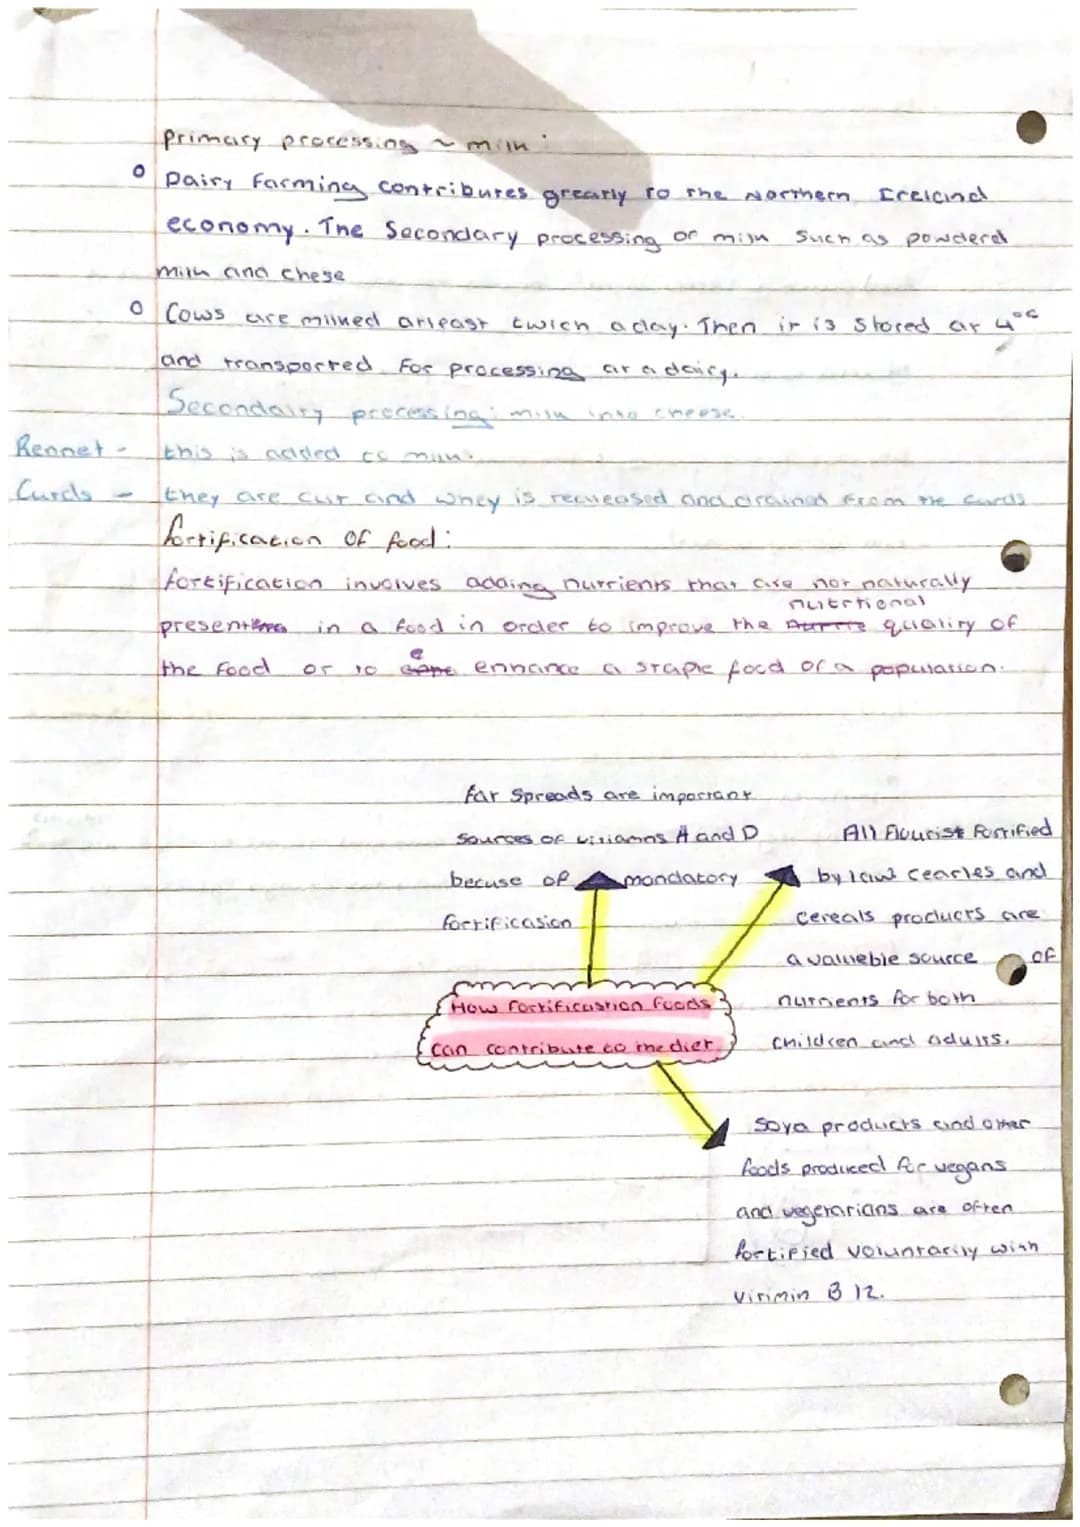 primary processing ~ milk:
o Dairy Farming contributes greatly to the Northern Ireland
economy. The Secondary processing of milk such as powdered
milk and chese
o Cows are milked atleast twich a day. Then it is stored at 4°c
and transported for processing at a dairy.
Secondairy processing: milk into cheese.
Rennet - this is added to milk.
Curds - they are cut and whey is realeased and drained from the curds
fortification of food:
fortification involves adding nutrients that are not naturally
nutrtional
present in a food in order to improve the quality of
the food or to enhance a staple food of a population.
fat spreads are important
sources of vitiamns A and D
becuse of mandatory
fortificasion
All flourist fortified
by law cearles and
cereals products are
a valueble source of
nutrients for both
children and adults.
How fortificastion foods
can contribute to the diet
Soya products and other
foods produced for vegans
and vegetarians are often
fortified voluntarily with
vitimin B 12.